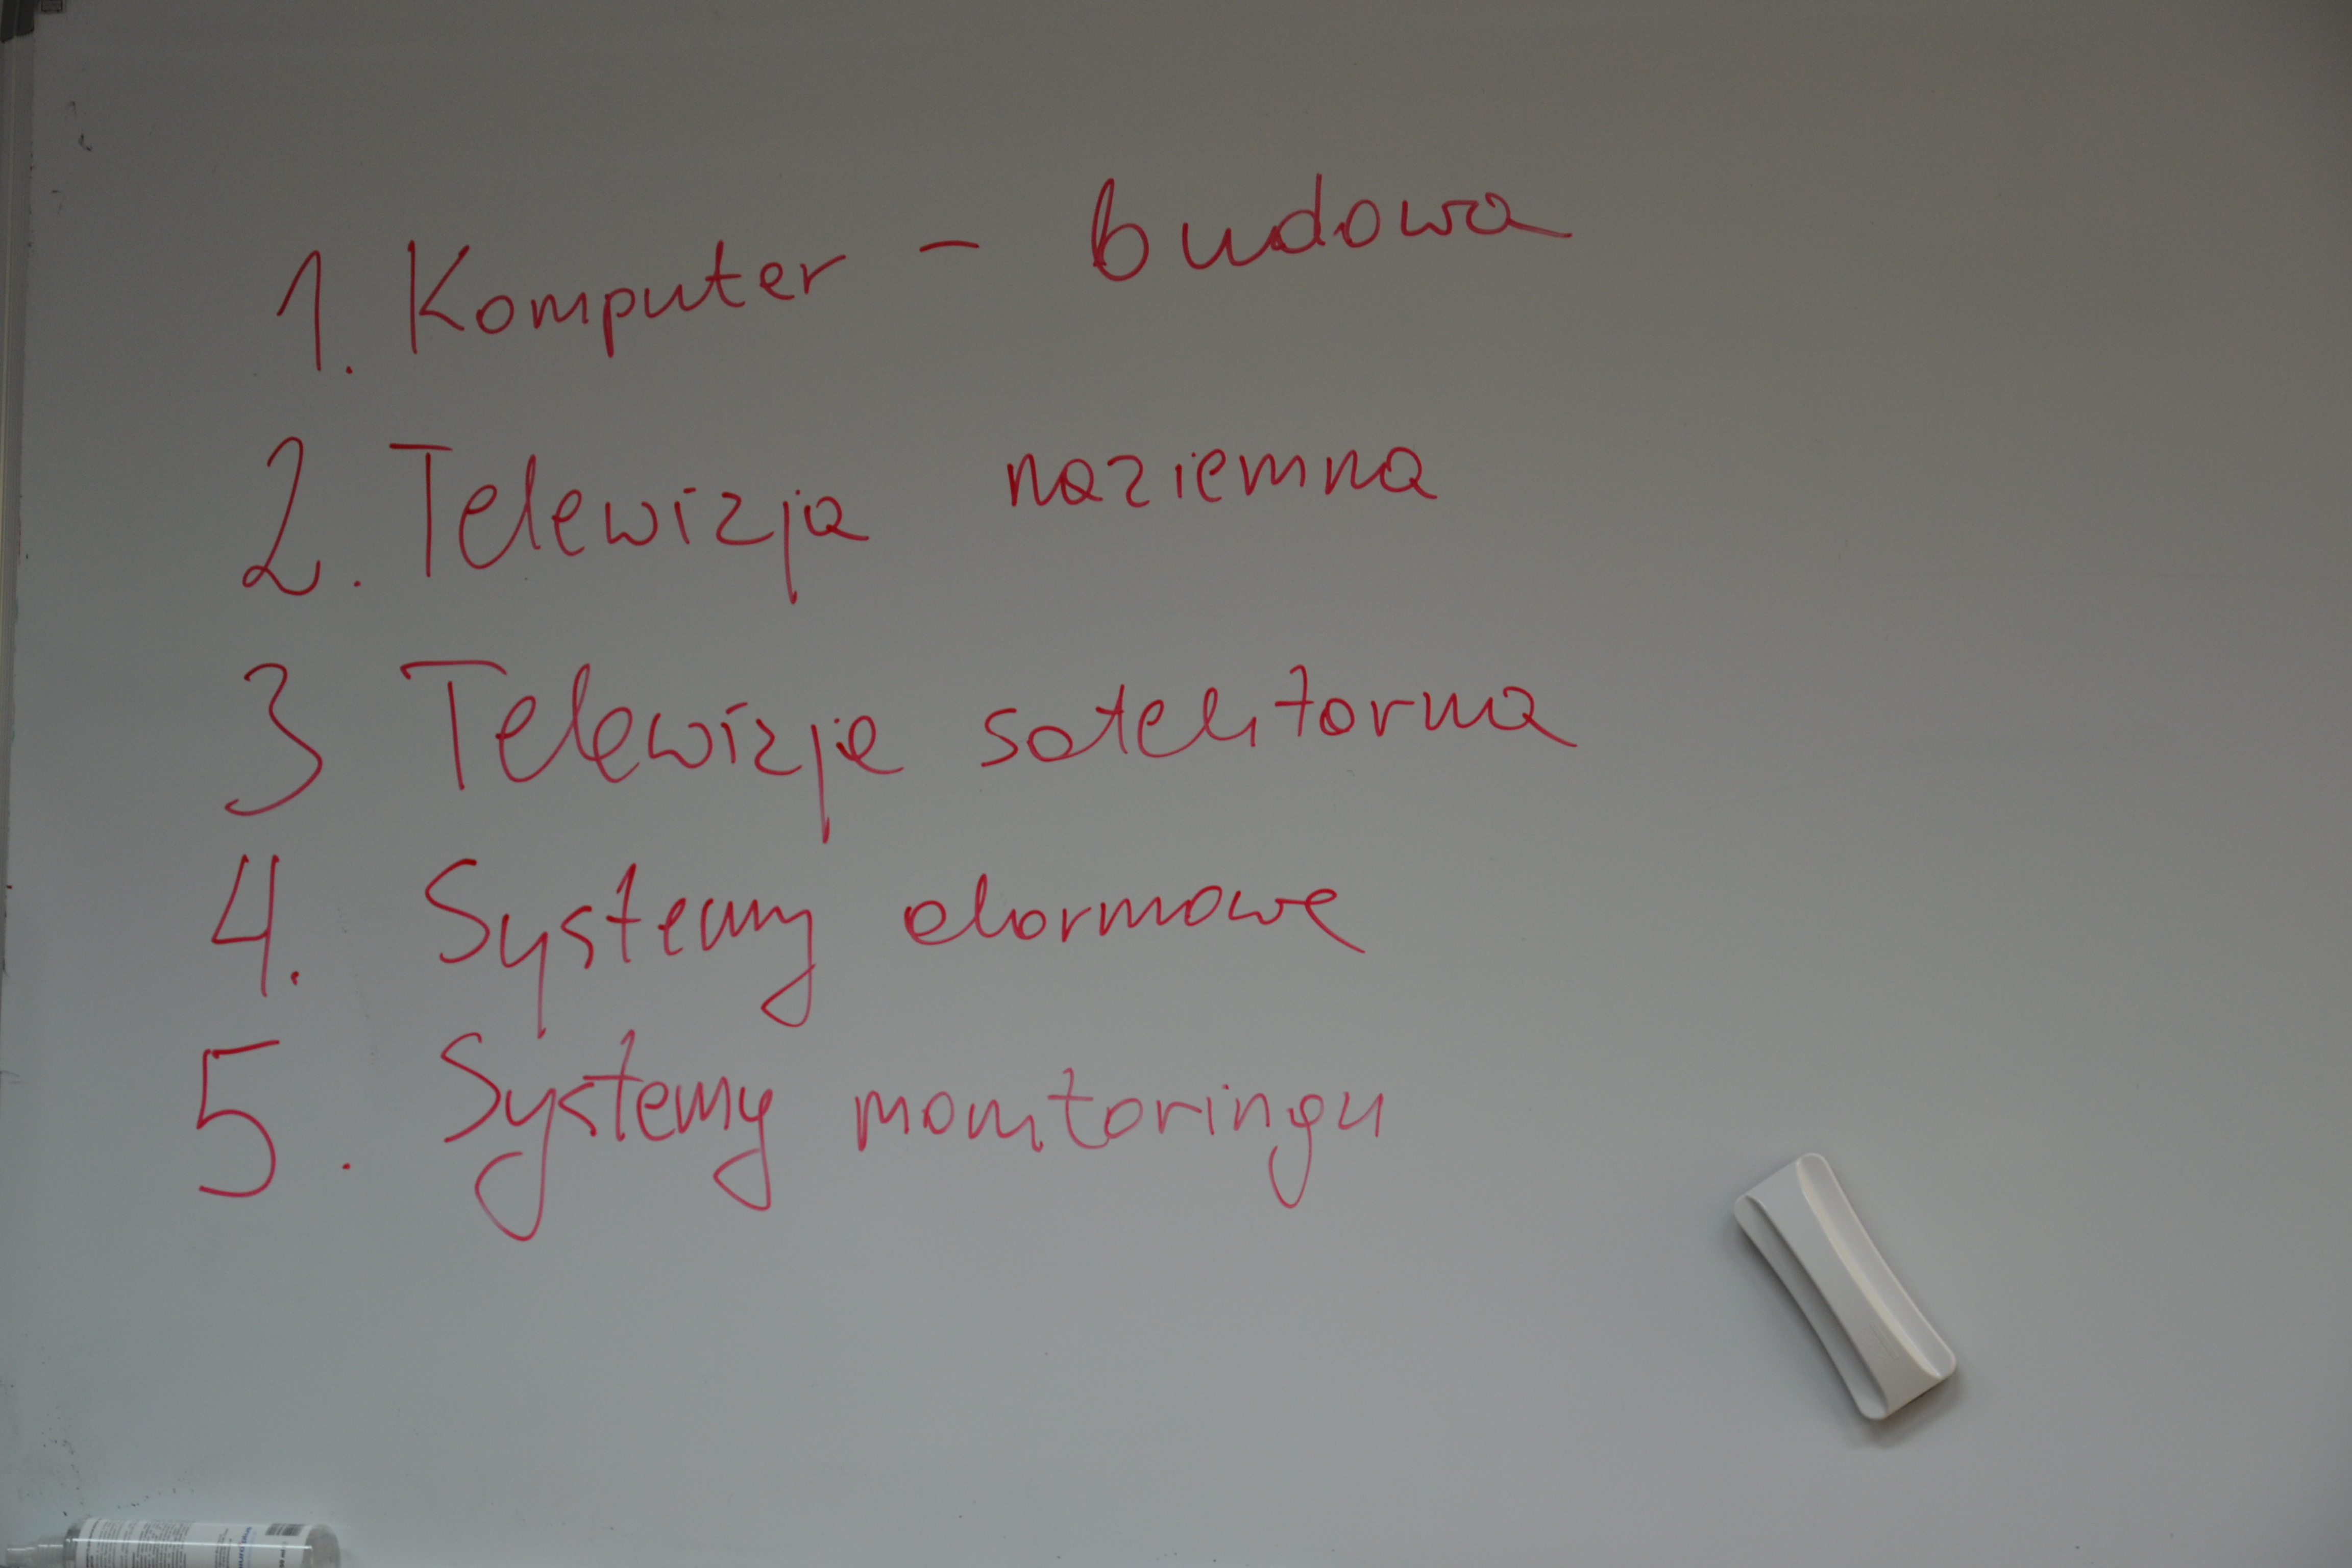 1. Komputer - budowa
2. Telewizja naziemna
3 Telewizja satelitarna
4. Systemy alarmowe
5. Systemy monitoringu